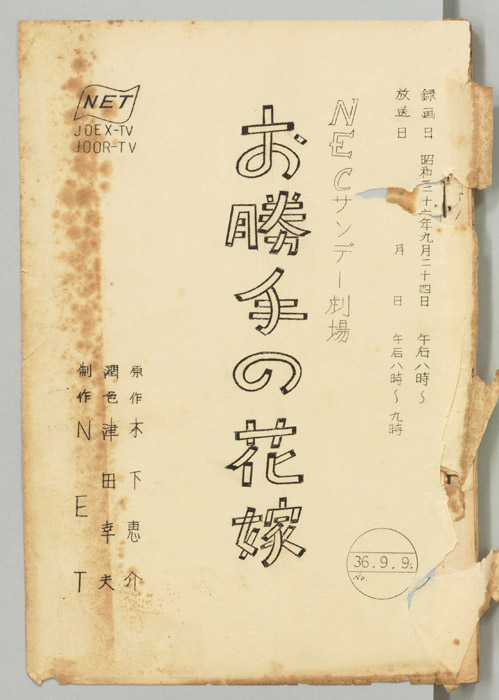 録画日 昭和三十六年九月二十四日 午后八時〜
放送日 月 日 午后八時〜九時
NECサンデー劇場
お勝手の花嫁
NET
JOEX-TV
JOOR-TV
原作 木下恵介
潤色 津田幸夫
制作 NET
36.9.9.
No.